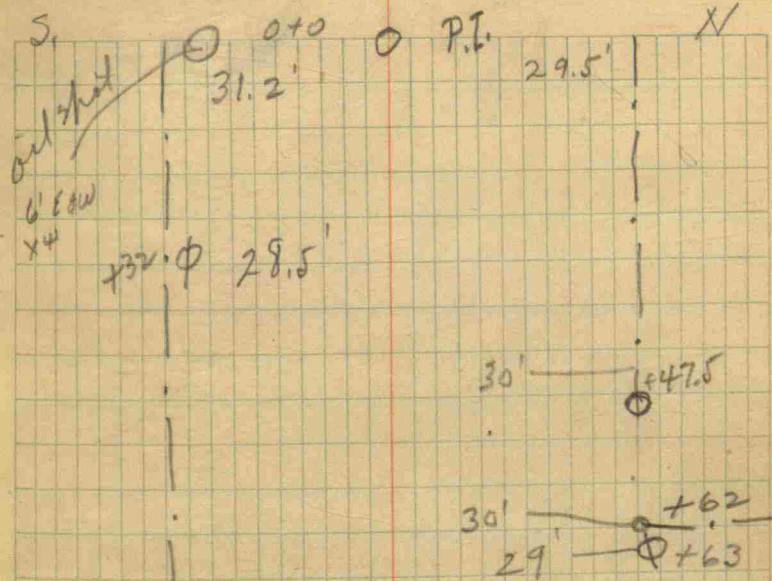 S. 0+0 P.I. N
31.2' 29.5'
oil spot
6' E & W
X 4'
+32 28.5'
30' +47.5
30' +62
29' +63